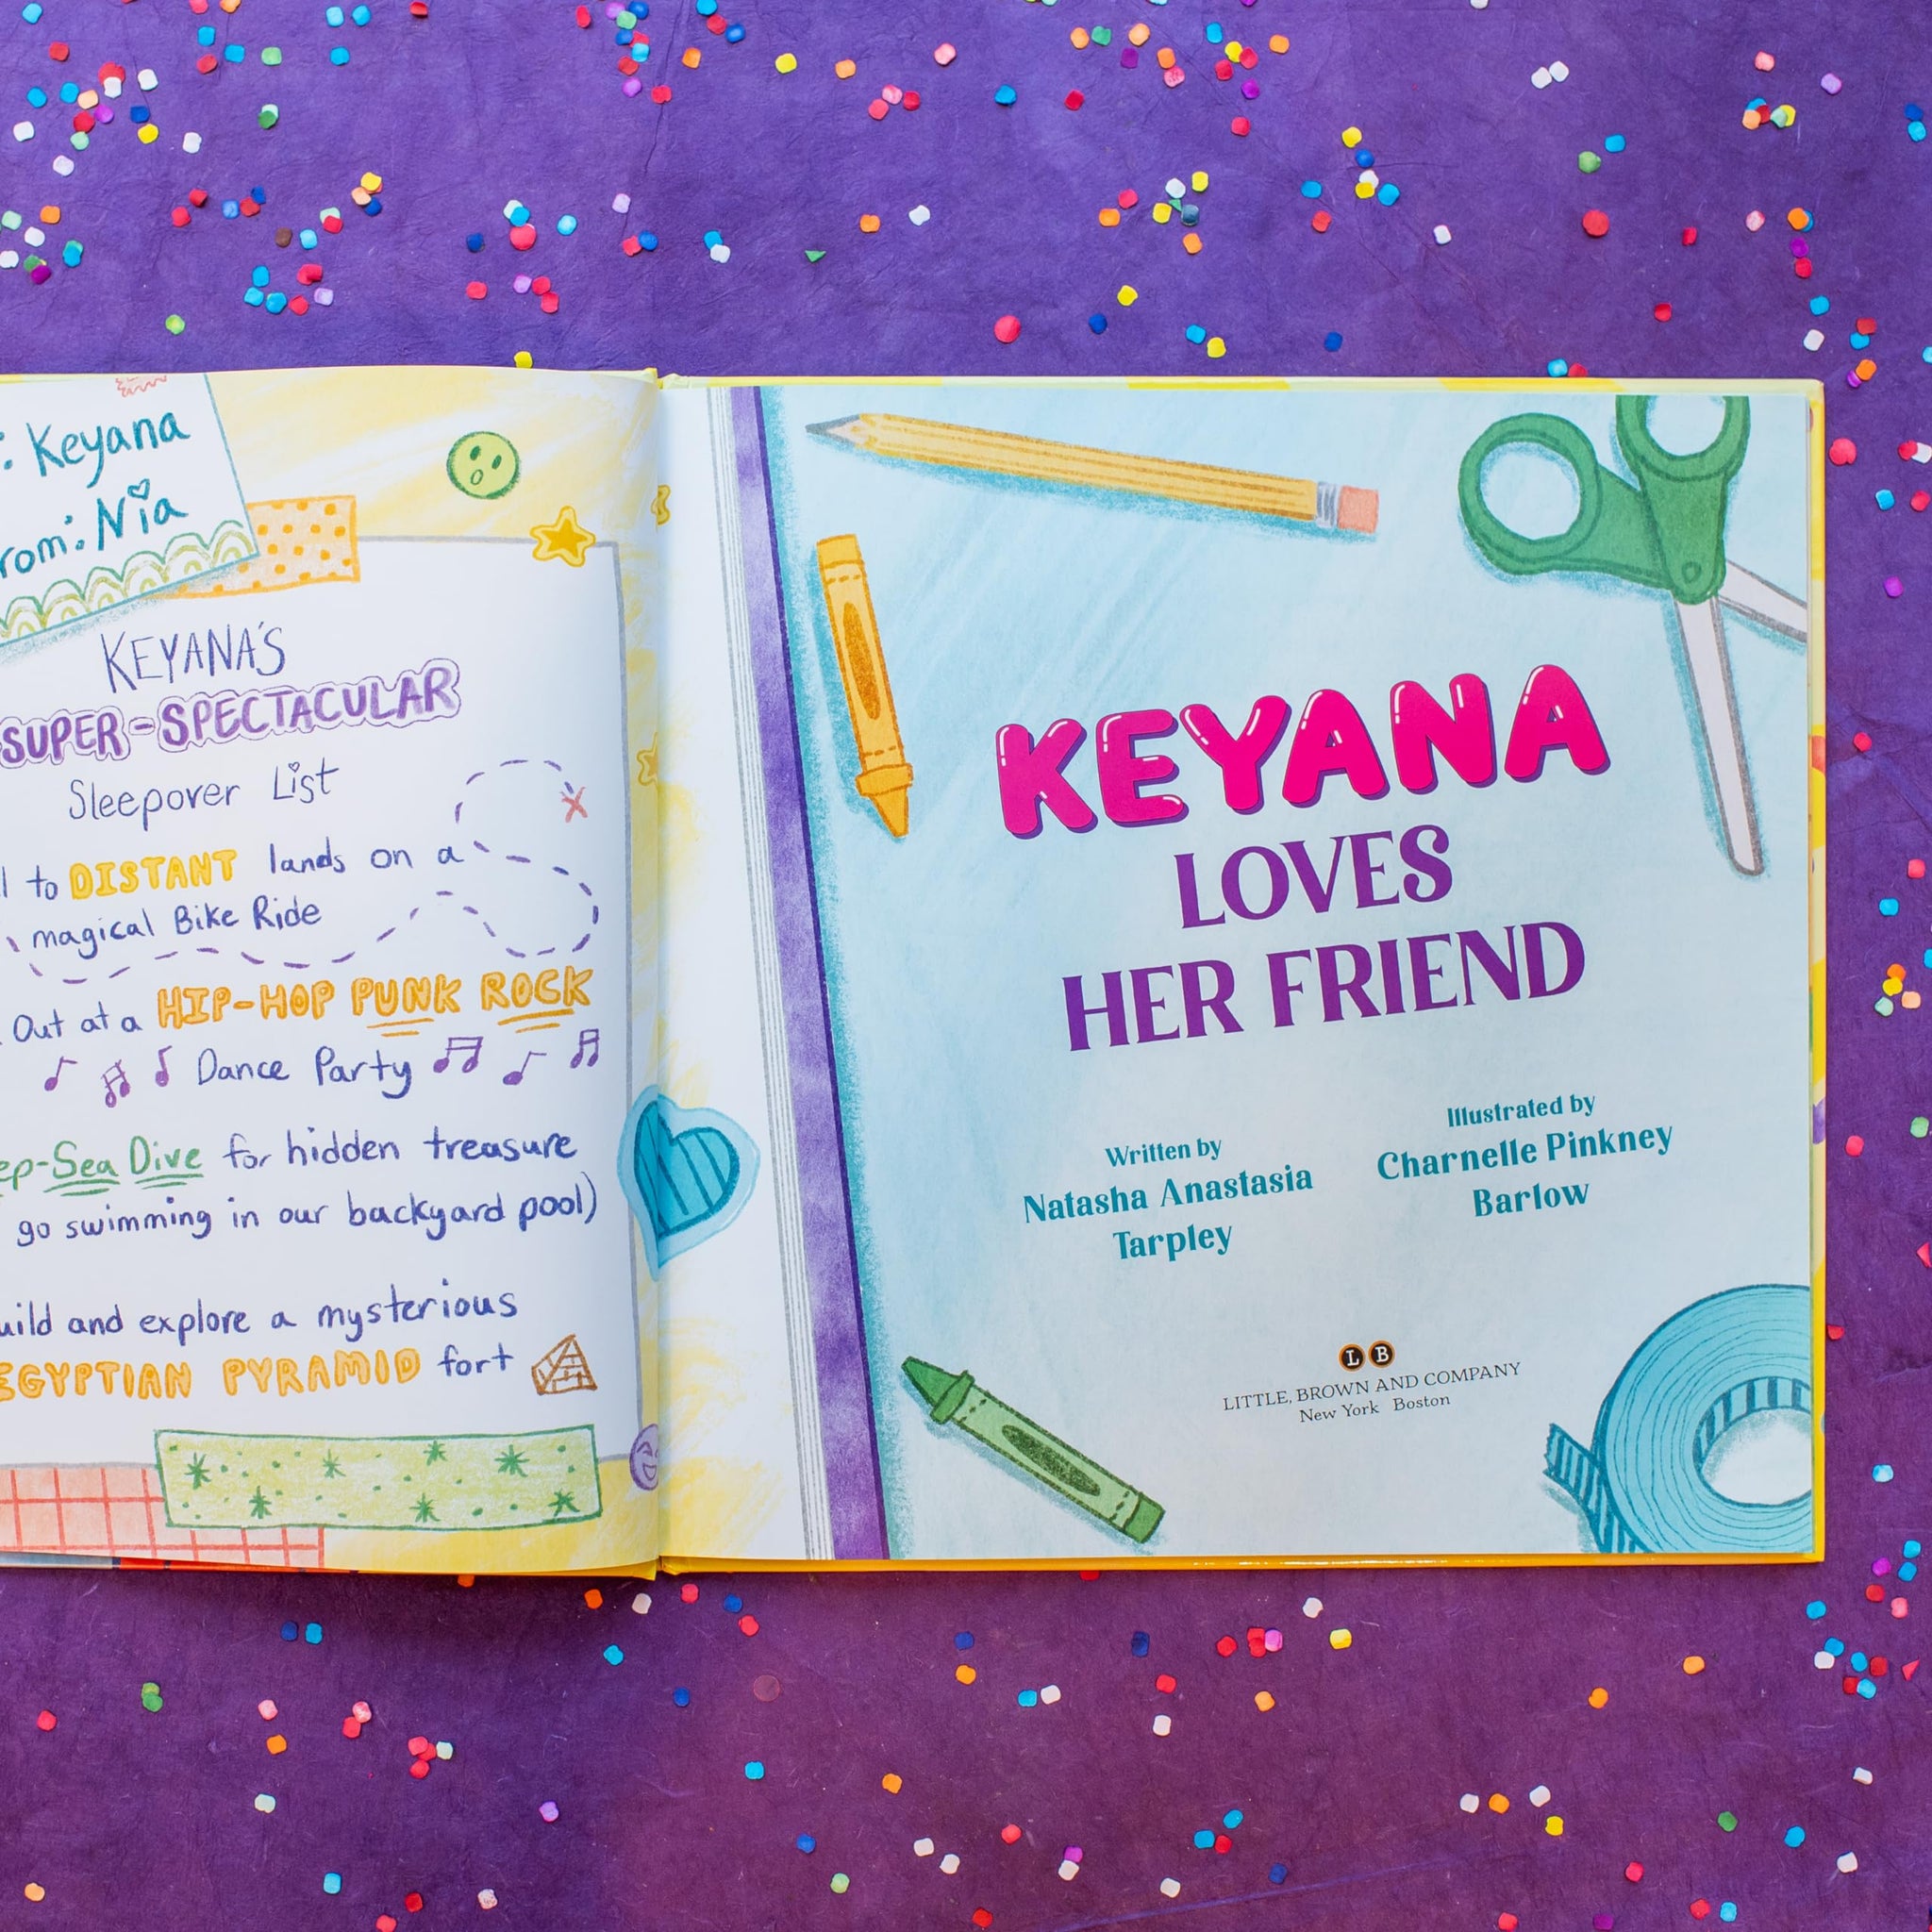 : Keyana
rom: Nia
KEYANA'S
SUPER-SPECTACULAR
Sleepover List
to DISTANT lands on a
magical Bike Ride
Out at a HIP-HOP PUNK ROCK
Dance Party
ep-Sea Dive for hidden treasure
go swimming in our backyard pool)
uild and explore a mysterious
EGYPTIAN PYRAMID fort
KEYANA
LOVES
HER FRIEND
Written by
Natasha Anastasia
Tarpley
Illustrated by
Charnelle Pinkney
Barlow
L B
LITTLE, BROWN AND COMPANY
New York Boston